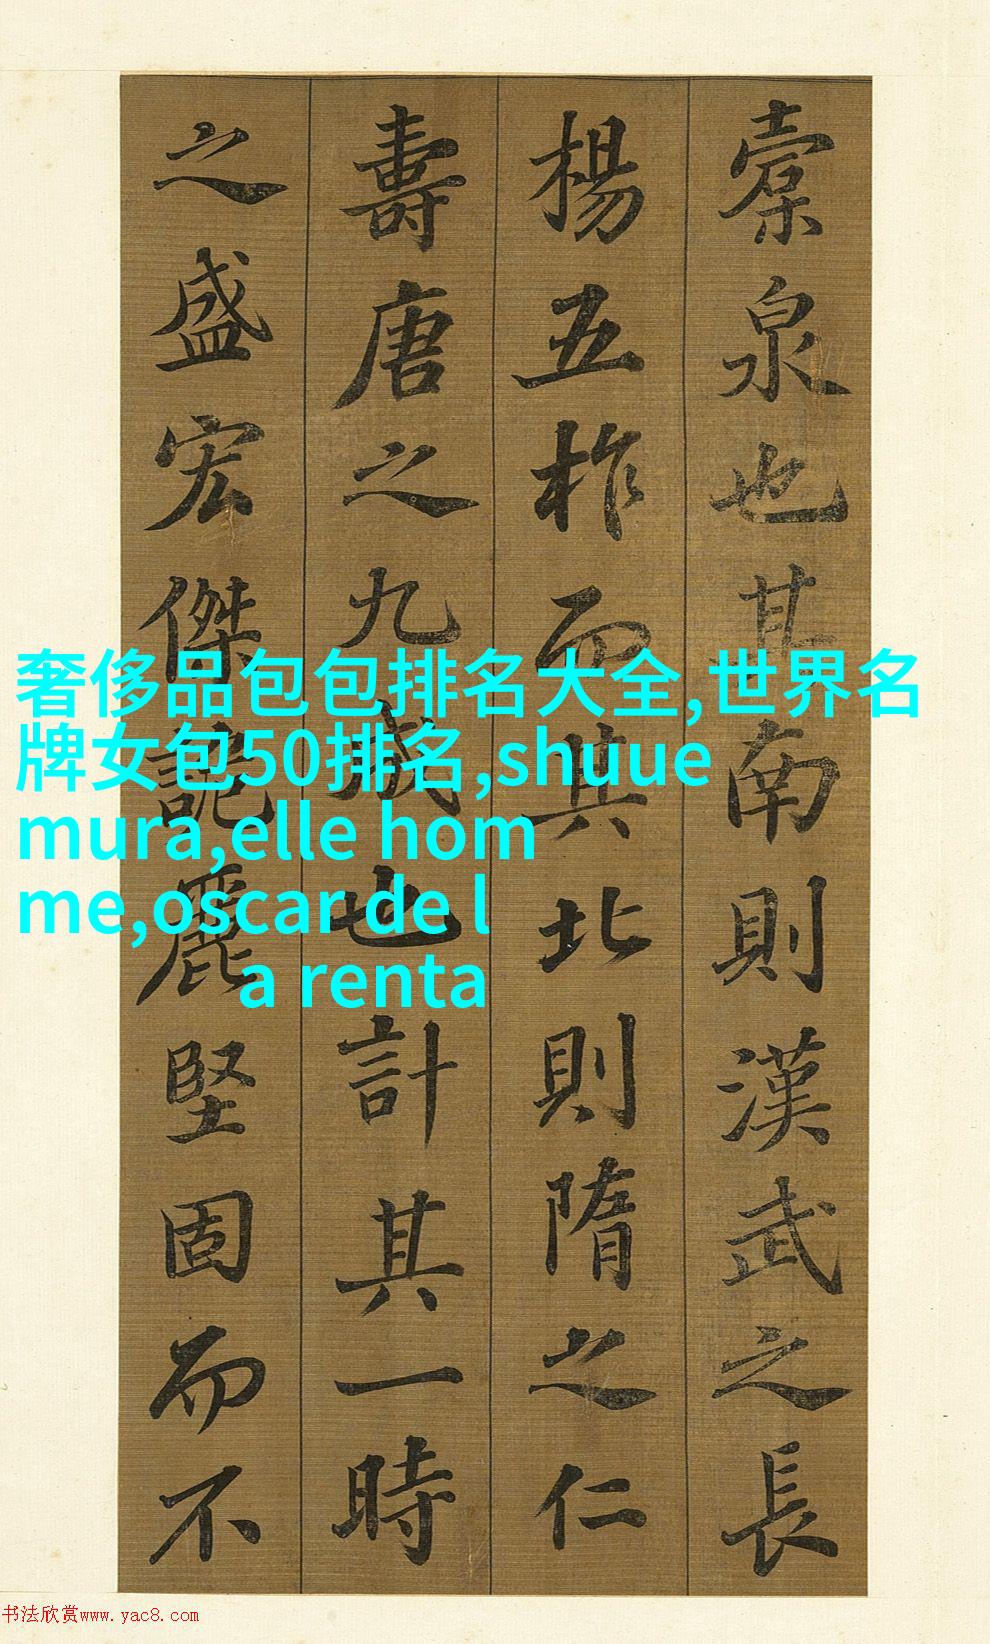 橐泉也其南則漢武之長
楊五柞而其北則隋之仁
壽唐之九成也計其一時
之盛宏傑詭麗堅固而不
奢侈品包包排名大全,世界名
牌女包50排名,shu ue
mura,elle hom
me,oscar de l
a renta
书法欣赏www.yac8.com